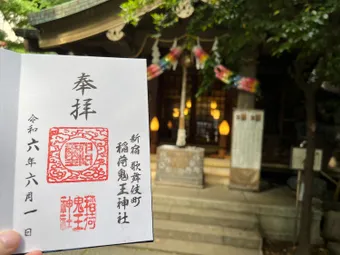 奉拝
新宿 歌舞伎町
稲荷鬼王神社
令和六年六月一日
稲荷
鬼王
神社